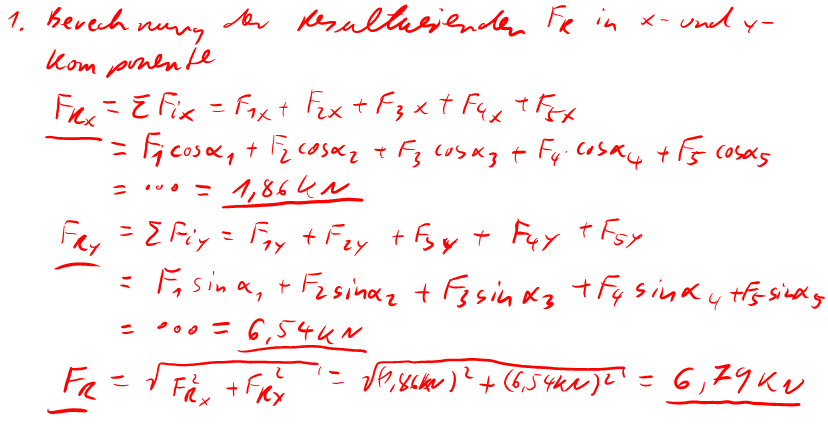 1. Berechnung der Resultierenden F_R in x- und y-
Komponente
F_Rx = Σ F_ix = F_1x + F_2x + F_3x + F_4x + F_5x
= F_1 cosα_1 + F_2 cosα_2 + F_3 cosα_3 + F_4 · cosα_4 + F_5 cosα_5
= ... = 1,86 kN
F_Ry = Σ F_iy = F_1y + F_2y + F_3y + F_4y + F_5y
= F_1 sinα_1 + F_2 sinα_2 + F_3 sinα_3 + F_4 sinα_4 + F_5 sinα_5
= ... = 6,54 kN
F_R = √(F_Rx² + F_Ry²) = √((1,86kN)² + (6,54kN)²) = 6,79 kN